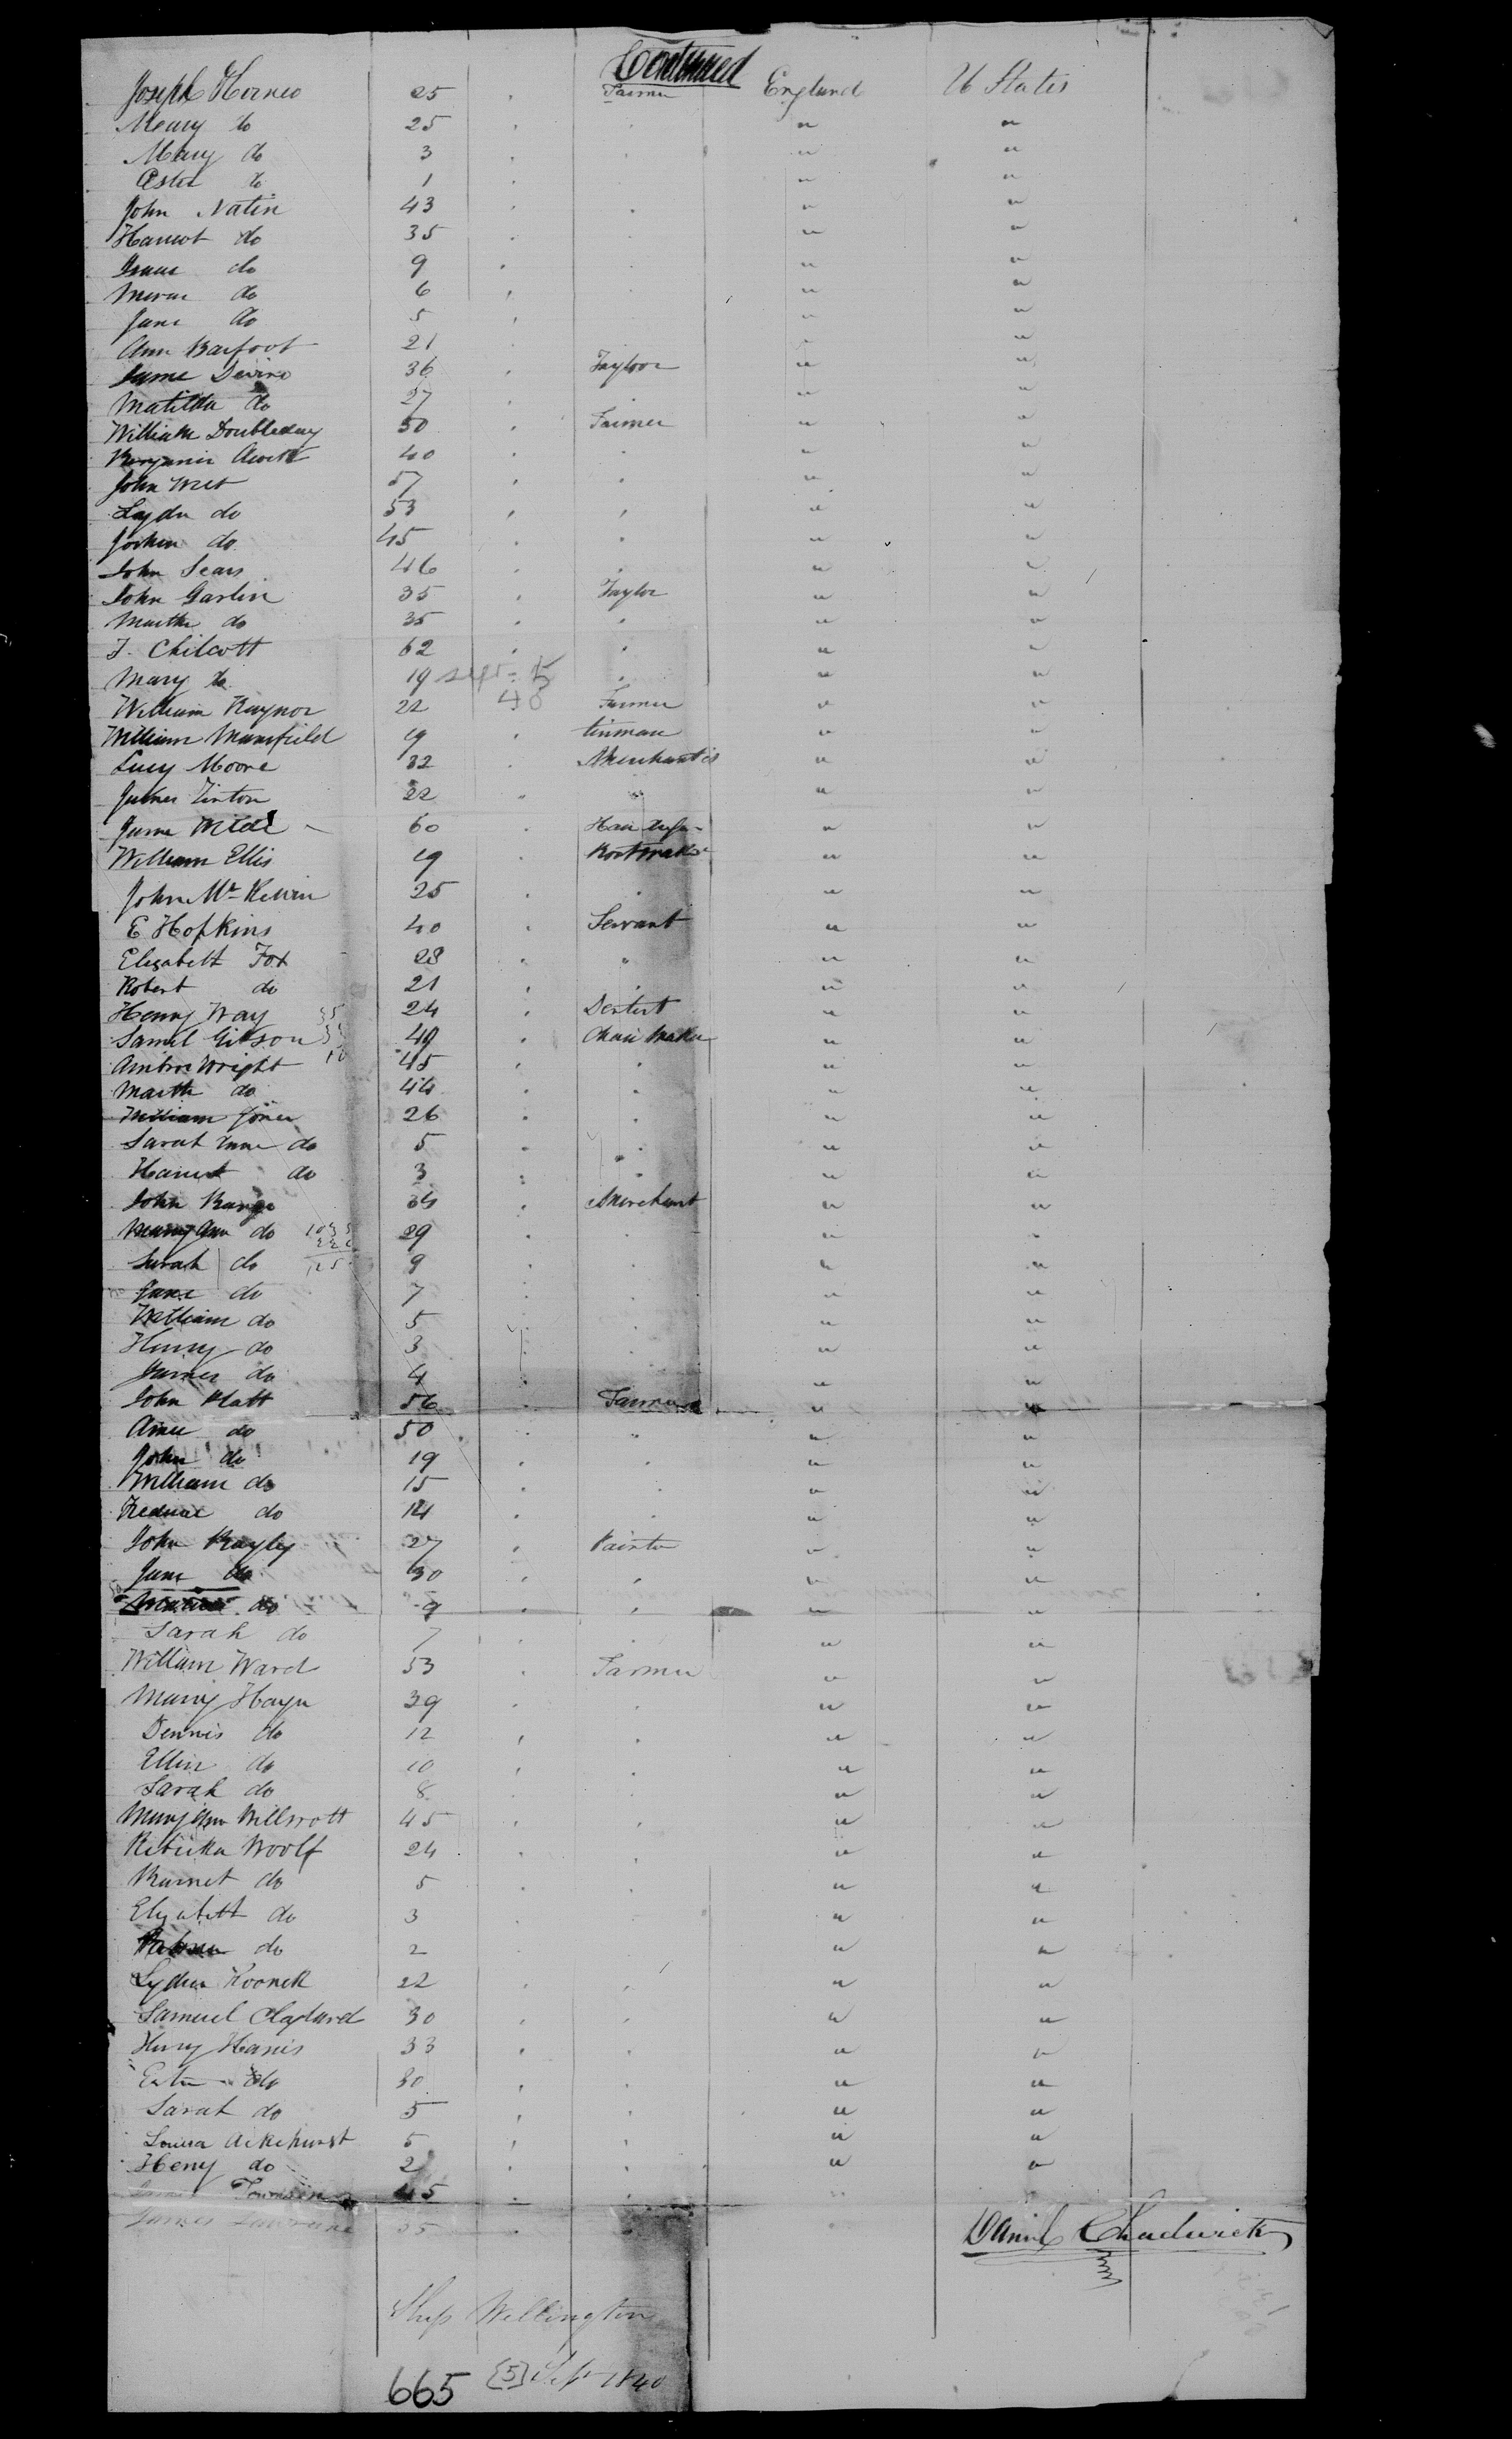 Continued
Joseph Horneo 25 Farmer England U States
Meary do 25 " "
Mary do 3 " "
Ester do 1 " "
John Natin 43 " "
Harriot do 35 " "
Isaac do 9 " "
do 6 " "
Jane do 5 " "
Ann Barfoot 21 " "
Jame Devine 36 Taylor " "
Matilda do 27 " "
William Doubleday 50 Farmer " "
Benjamin 40 " "
John West 57 " "
Lydia do 53 " "
do 45 " "
John Sears 46 " "
John Garlin 35 Taylor " "
Martha do 35 " "
J. Chilcott 62 " "
Mary do 19 Sept 5 " "
William Raynor 22 40 Farmer " "
William Mansfield 19 tinman " "
Lucy Moore 32 " "
James Linton 22 " " "
Jame Wilde 60 " "
William Ellis 19 Bootmaker " "
John Mc 25 " "
E Hopkins 40 Servant " "
Elizabeth Fox 28 " " "
Robert do 21 " "
Henry Way 24 Dentist " "
Saml Gibson 49 Chair Maker " "
Ambros Wright 45 " "
Marth do 44 " "
William Jones 26 " "
Sarah Anne do 5 " "
Harriet do 3 " "
John Range 34 Merchant " "
Mary Ann do 29 " "
Sarah do 9 " "
Jane do 7 " "
William do 5 " "
Henry do 3 " "
James do 4 " "
John Platt 56 Farmer " "
do 50 " " "
John do 19 " "
William do 15 " "
do 14 " "
John Bayley 27 Painter " "
Jane do 30 " "
do 9 " "
Sarah do 7 " "
William Ward 53 Farmer " "
Mary Hayn 39 " "
Dennis do 12 " "
Ellin do 10 " "
Sarah do 8 " "
Mary Ann Willmott 45 " "
Rebecka Woolf 24 " "
Barnet do 5 " "
Elizabeth do 3 " "
do 2 " "
Lydia 22 " "
Samuel 30 " "
Henry Harris 33 " "
Ester do 30 " "
Sarah do 5 " "
Louisa Akehurst 5 " "
Heny do 2 " "
45 " "
James 35 "
Daniel Chadwick
Ship Wellington
665 [5] Sept 1840